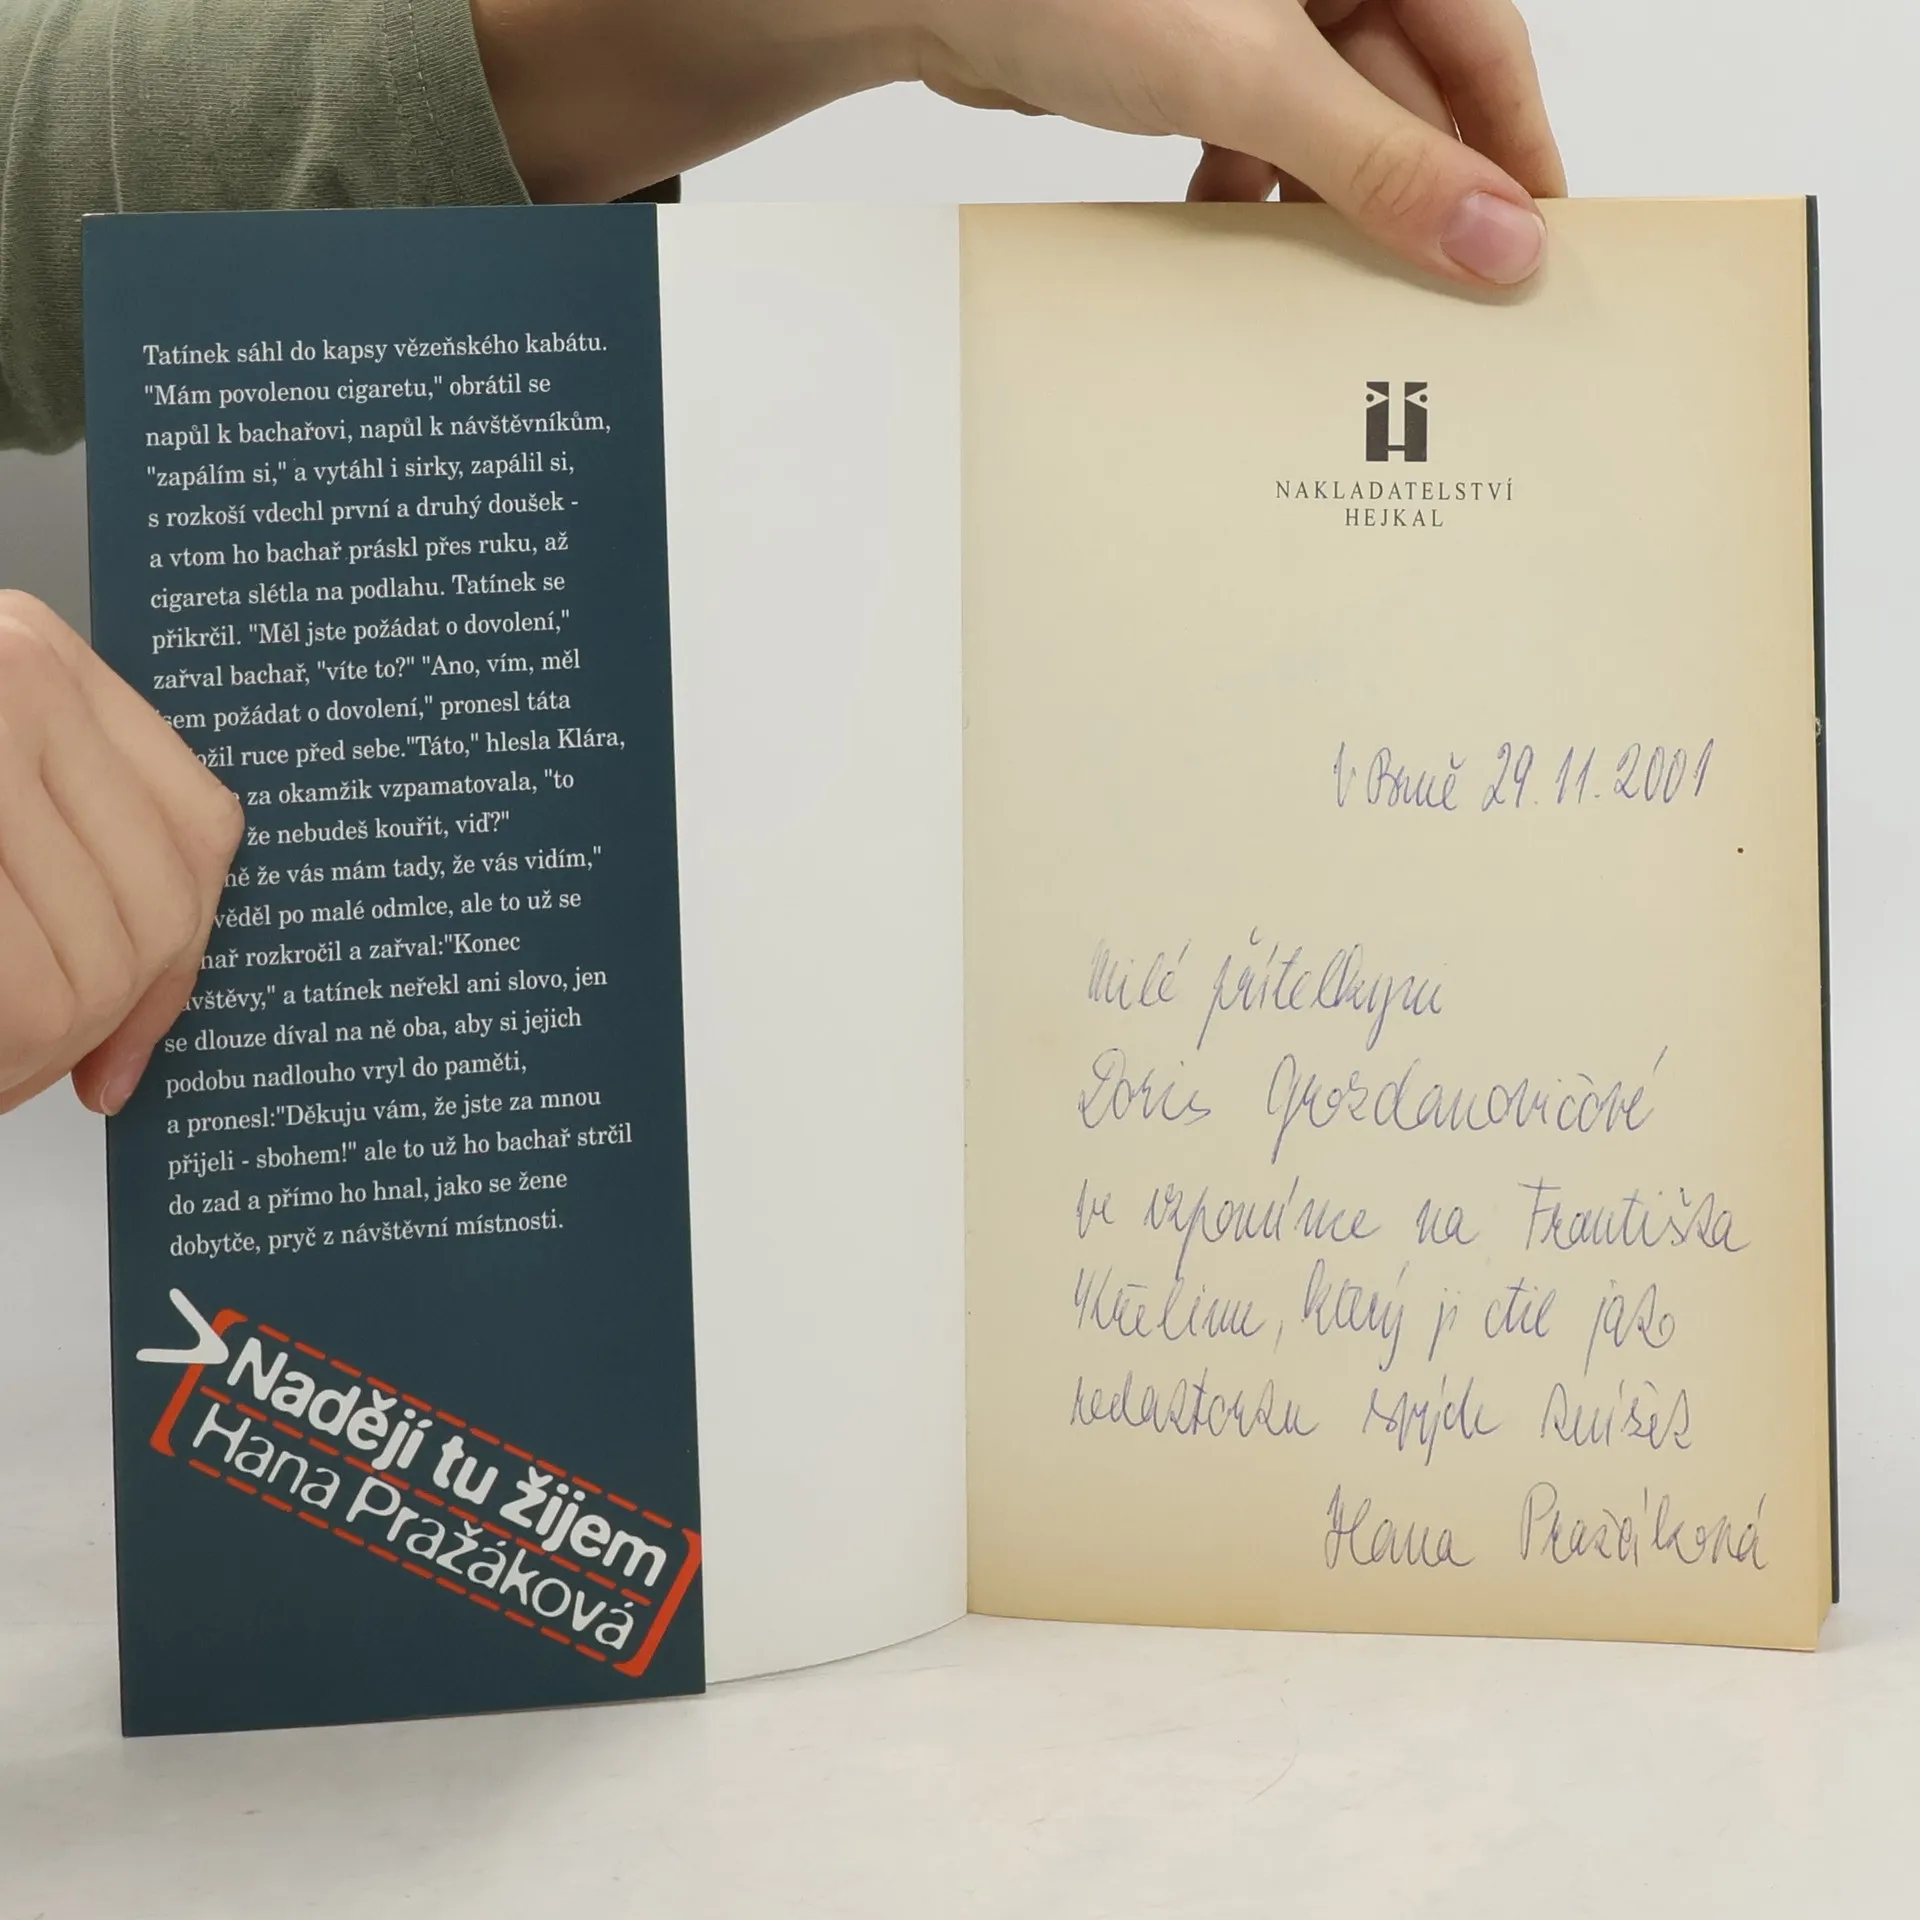 Tatínek sáhl do kapsy vězeňského kabátu.
"Mám povolenou cigaretu," obrátil se
napůl k bachařovi, napůl k návštěvníkům,
"zapálím si," a vytáhl i sirky, zapálil si,
s rozkoší vdechl první a druhý doušek -
a vtom ho bachař práskl přes ruku, až
cigareta slétla na podlahu. Tatínek se
přikrčil. "Měl jste požádat o dovolení,"
zařval bachař, "víte to?" "Ano, vím, měl
sem požádat o dovolení," pronesl táta
ožil ruce před sebe."Táto," hlesla Klára,
za okamžik vzpamatovala, "to
že nebudeš kouřit, viď?"
ně že vás mám tady, že vás vidím,"
věděl po malé odmlce, ale to už se
hař rozkročil a zařval:"Konec
vštěvy," a tatínek neřekl ani slovo, jen
se dlouze díval na ně oba, aby si jejich
podobu nadlouho vryl do paměti,
a pronesl:"Děkuju vám, že jste za mnou
přijeli - sbohem!" ale to už ho bachař strčil
do zad a přímo ho hnal, jako se žene
dobytče, pryč z návštěvní místnosti.
Nadějí tu žijem
Hana Pražáková
NAKLADATELSTVÍ
HEJKAL
V Brně 29.11.2001
Milé přítelkyni
Doris Grozdanovičové
ve vzpomínce na Františka
Křelinu, který ji ctil jako
redaktorku svých knížek
Hana Pražáková